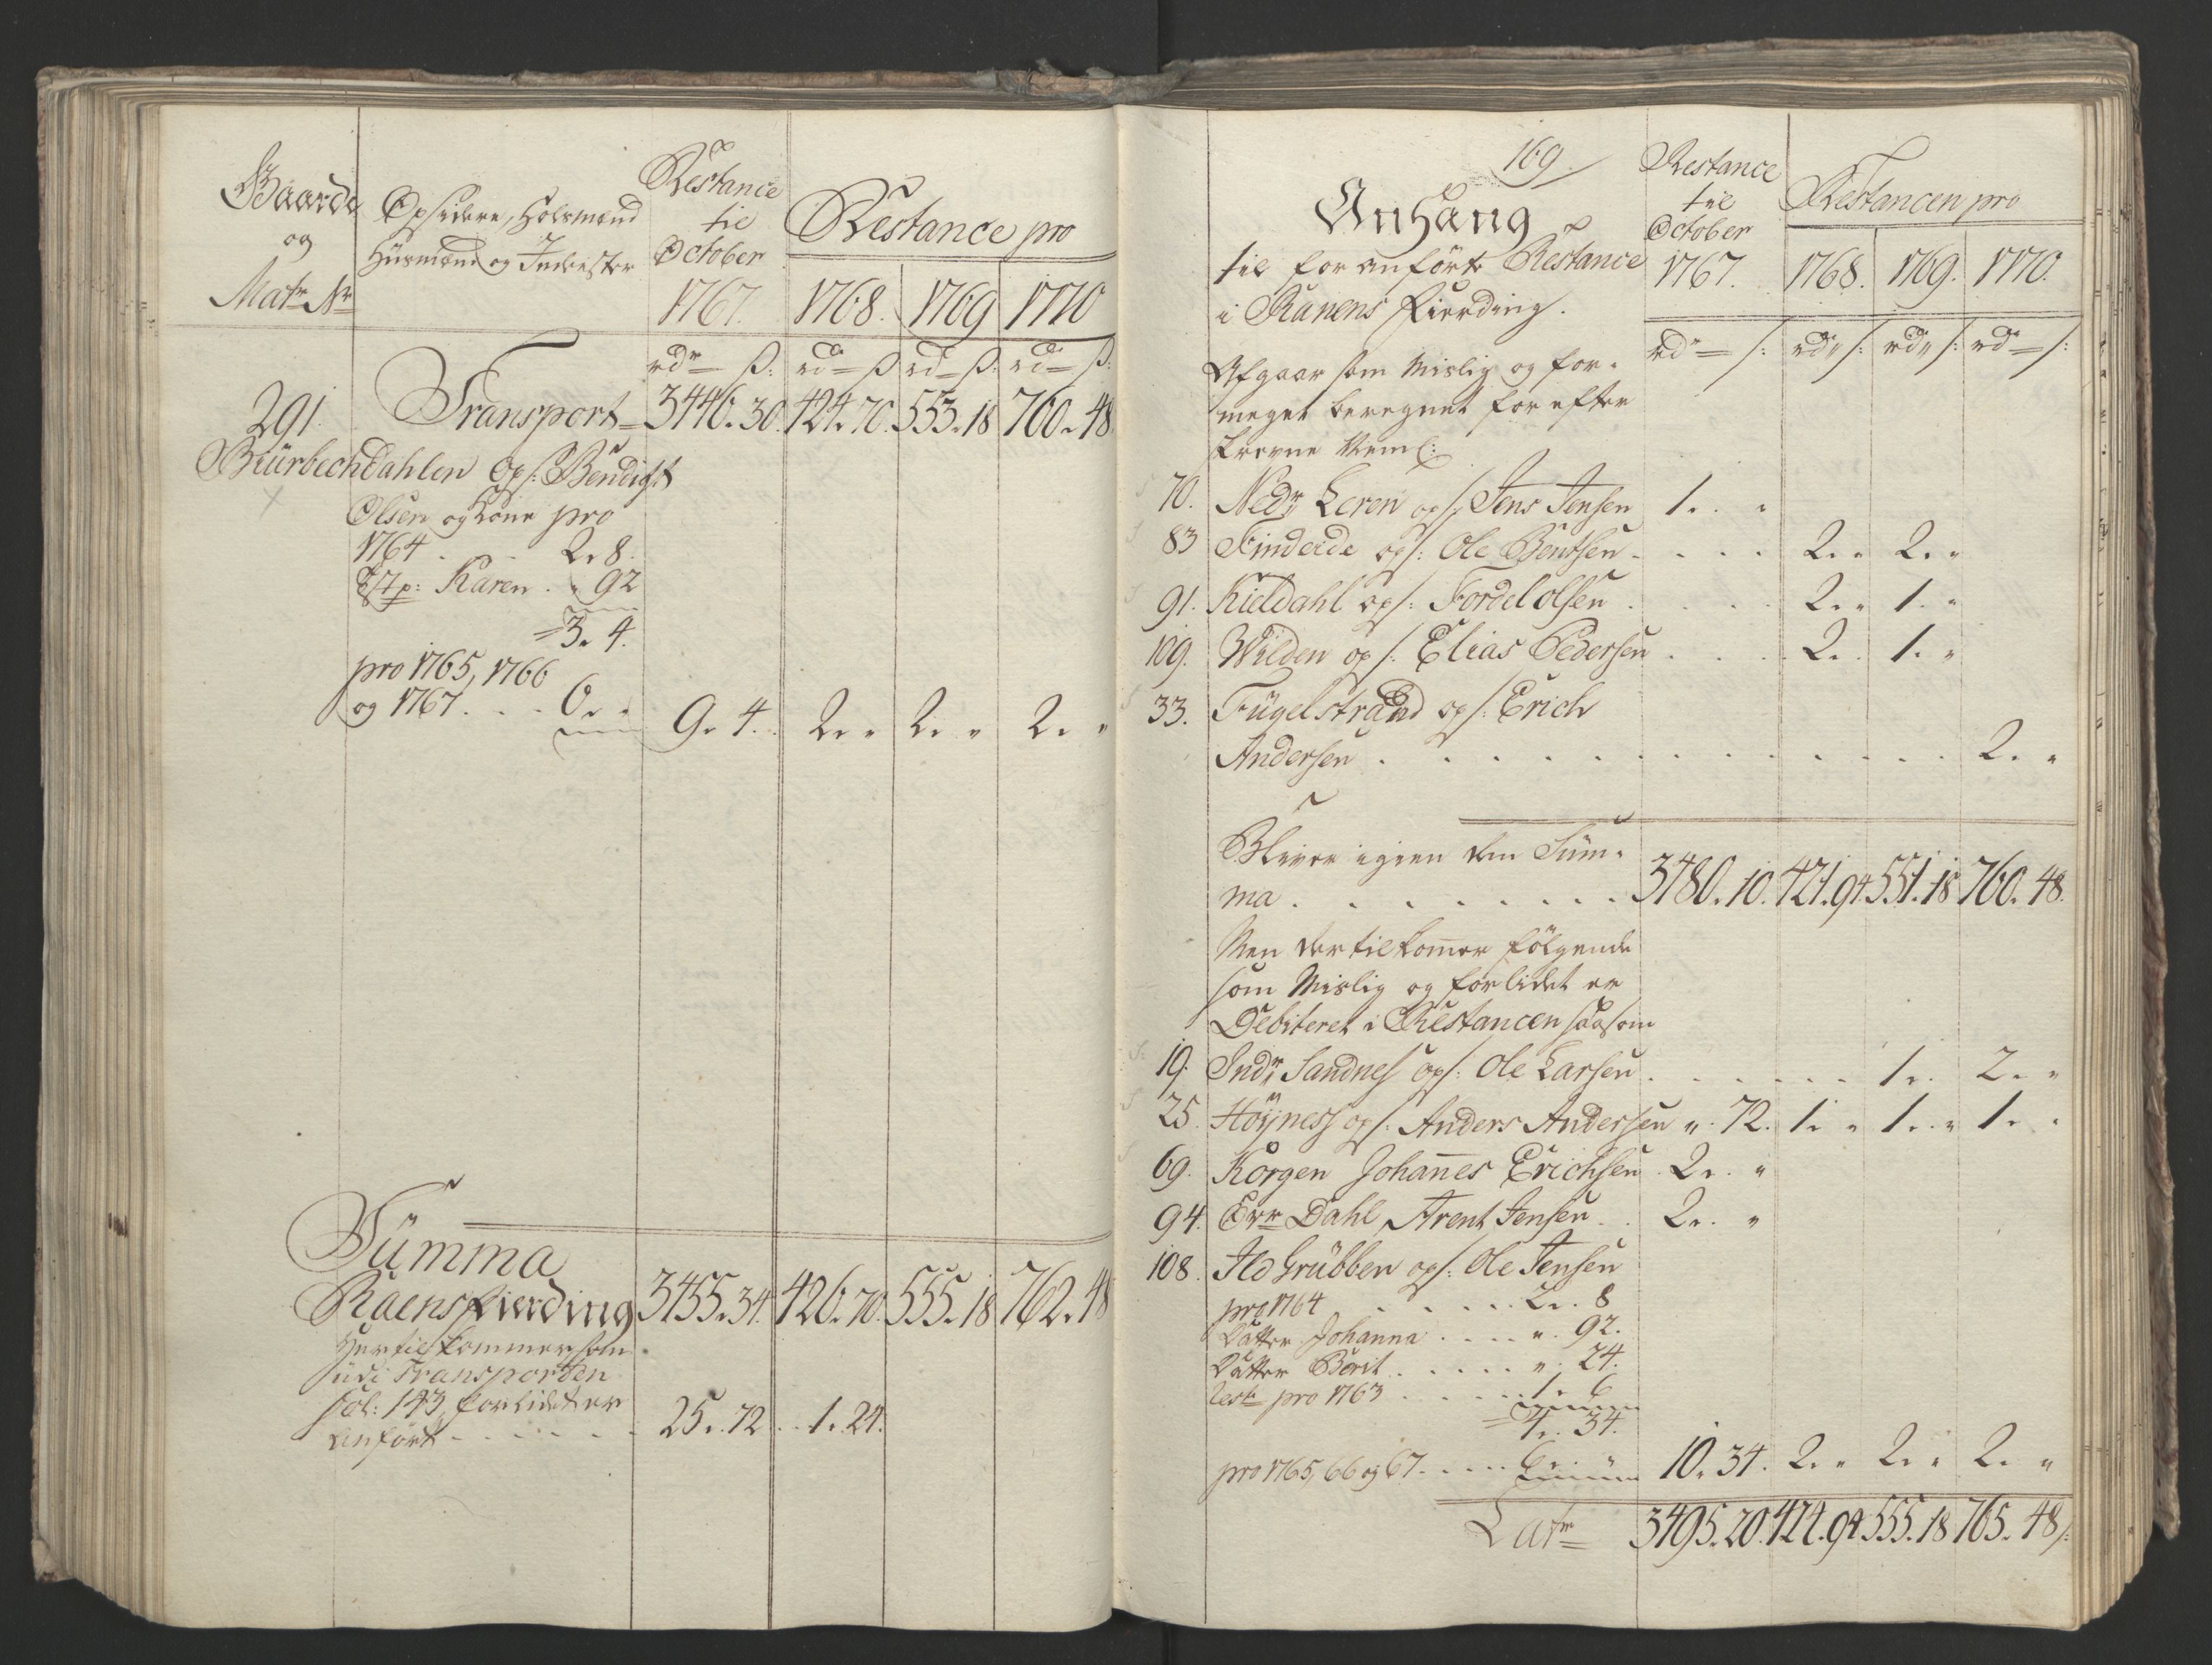 Gaarde
og
Matr No
Opsidere, Holsmænd
Hüsmænd og Inderster
Restance
til
October
1767.
Restance pro
1768. 1769 1770
rdr ß: rd ß rd ß: rd ß:
291. Transport 3446. 30. 424. 70. 553. 18 760. 48.
Biürbechdahlen Ops: Bendigt
Olsen og Kone pro
1764 . . . 2. 8.
Karen . " 92
3. 4.
pro 1765, 1766
og 1767 . . . 6. " 9. 4. 2. " 2. " 2. "
Sümma
Raensfierding 3455. 34. 426. 70. 555. 18 762. 48
Hertil kommer som
udi Transporten
fol: 143, for lidet er
anført . . . . . 25. 72. . 1. 24.
169.
Anhang
til foranførte Restance
i Ranens Fierding.
Restance
til
October
1767.
Restancen pro
1768. 1769. 1770.
rdr /: rd /: rd /: rd /:
Afgaar som Mislig og for-
meget beregnet for efter
skrevne Neml:
70. Nedr Leren ops: Jens Jensen 1. . "
83 Finderde ops: Ole Bentsen . . . . 2. " 2. "
91. Kieldahl ops: Fordel olsen . . . . 2. " 1. "
109. Wilden ops: Elias Pedersen . . . . 2. . 1. "
33. Fügelstrand ops: Erich
Andersen . . . . . . . . . . . . 2. "
Bliver igien den Süm-
ma . . . . . . . . 3480. 10. 421. 94. 551. 18 760. 48.
Men der til kommer følgende
som Mislig og for lidet er
Debiteret i Restancen saasom
19. Indr Sandnes ops: Ole Larsen . . . . . . 1. . 2. "
25. Høynes ops: Anders Andersen " 72. 1. " 1. " 1. "
69. Korgen Johannes Erichsen . 2. . "
94. Øvr Dahl, Arent Jensen . . 2. . "
108. Ild Grübben ops: Ole Jensen
pro 1764 . . . . . 2. . 8
Datter Johanna . . . . ". 92.
Datter Berit . . . . . ". 24.
Rest pro 1763 . . . . . 1. 6
4. . 34.
pro 1765, 66 og 67 . . . . . 6. . " 10. 34. 2. " 2. " 2. "
Latr 3495. 20. 424. 94 555. 18 765. 48/: